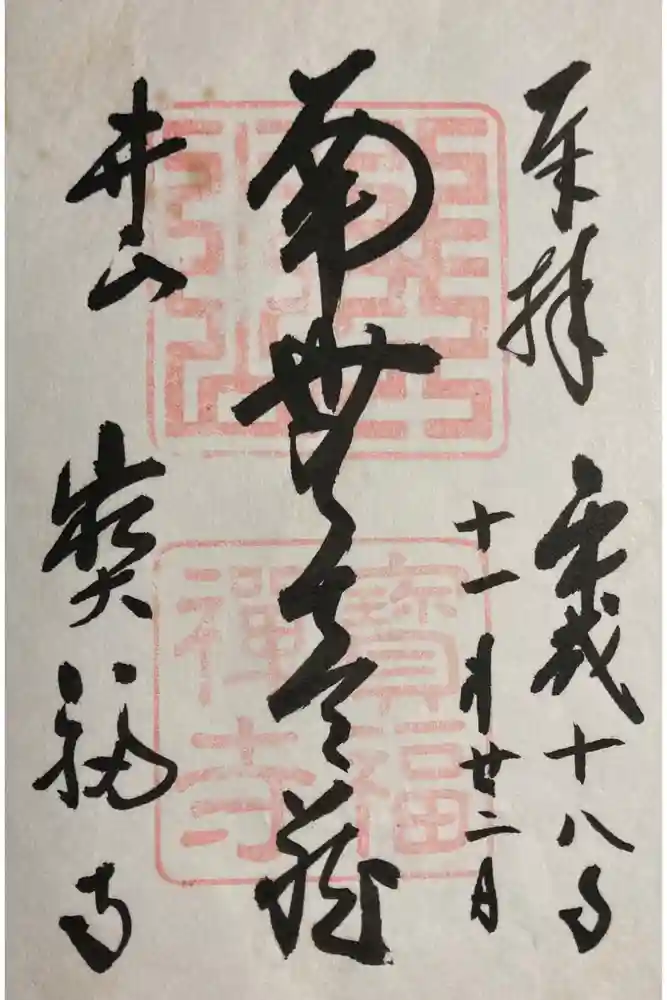 奉拝
平成十八年
十一月廿二日
南無虚空蔵
井山 寶福寺
寶福
禪寺